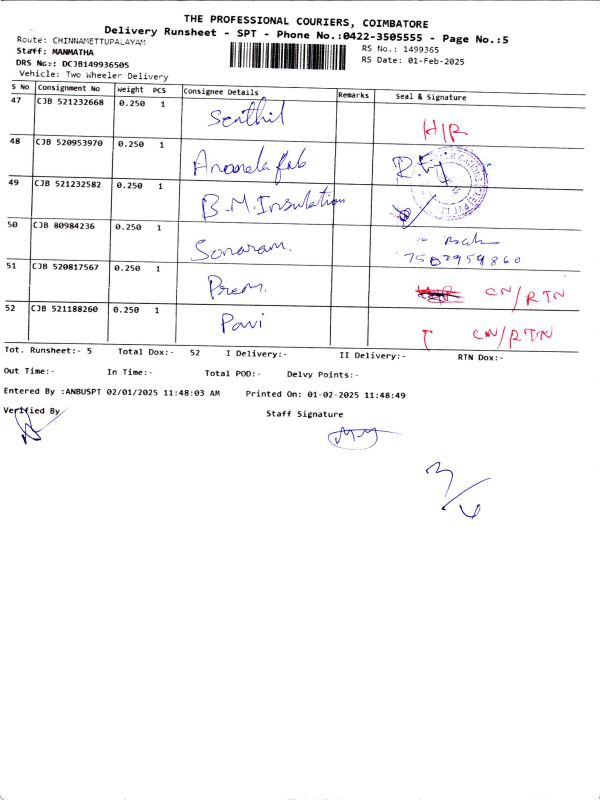 THE PROFESSIONAL COURIERS, COIMBATORE
Delivery Runsheet - SPT - Phone No.:0422-3505555 - Page No.:5
Route: CHINNAMETTUPALAYAM
RS No.: 1499365
Staff: MANMATHA
DRS No.: DCJB149936505
RS Date: 01-Feb-2025
Vehicle: Two Wheeler Delivery
S No Consignment No Weight PCS Consignee Details Remarks Seal & Signature
47 CJB 521232668 0.250 1 Senthil H/R
48 CJB 520953970 0.250 1
49 CJB 521232582 0.250 1 B.M.Insulation
50 CJB 80984236 0.250 1 Sonaram.
7502959860
51 CJB 520817567 0.250 1 Prem. CN/RTN
52 CJB 521188260 0.250 1 Pavi CN/RTN
Tot. Runsheet:- 5 Total Dox:- 52 I Delivery:- II Delivery:- RTN Dox:-
Out Time:- In Time:- Total POD:- Delvy Points:-
Entered By :ANBUSPT 02/01/2025 11:48:03 AM Printed On: 01-02-2025 11:48:49
Verified By Staff Signature